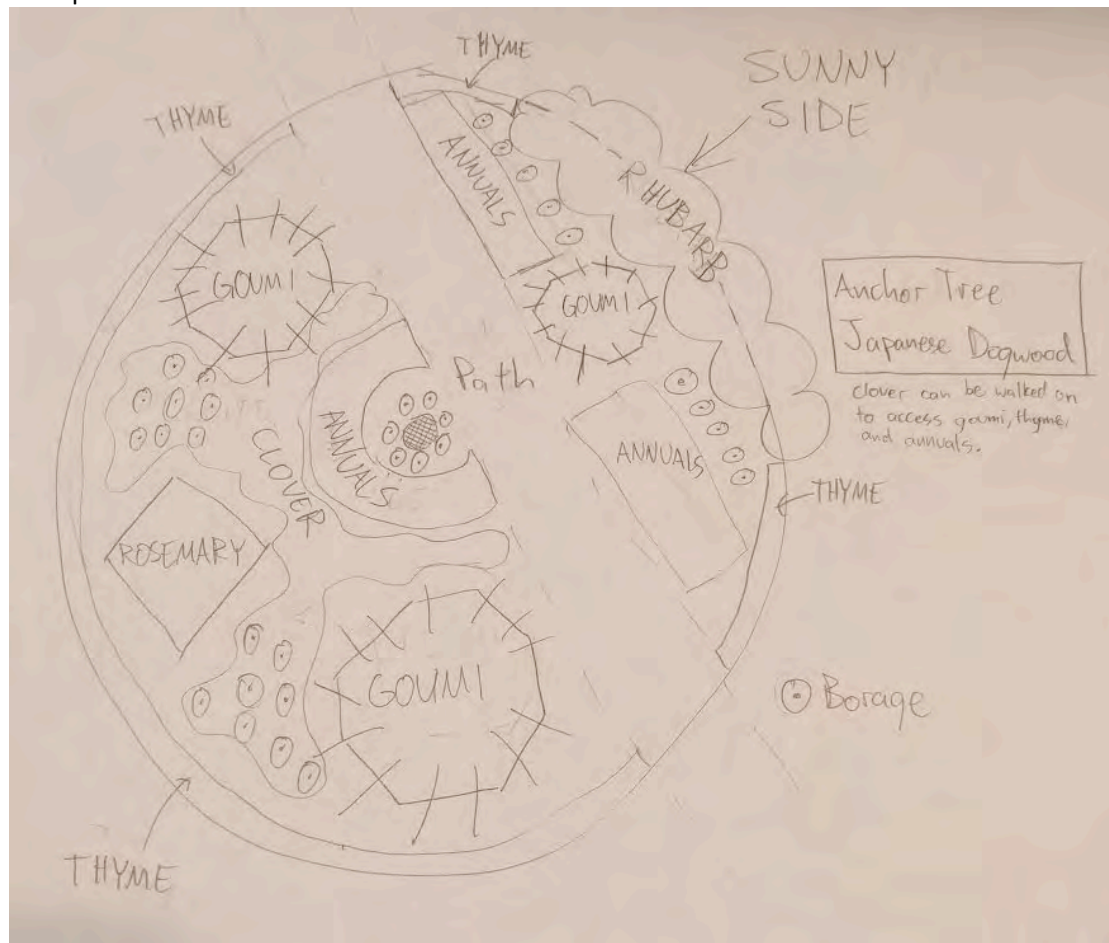 THYME
SUNNY
SIDE
THYME
ANNUALS
RHUBARB
GOUMI
GOUMI
Anchor Tree
Japanese Dogwood
clover can be walked on
to access goumi, thyme,
and annuals.
Path
ANNUALS
CLOVER
ANNUALS
THYME
ROSEMARY
GOUMI
Borage
THYME